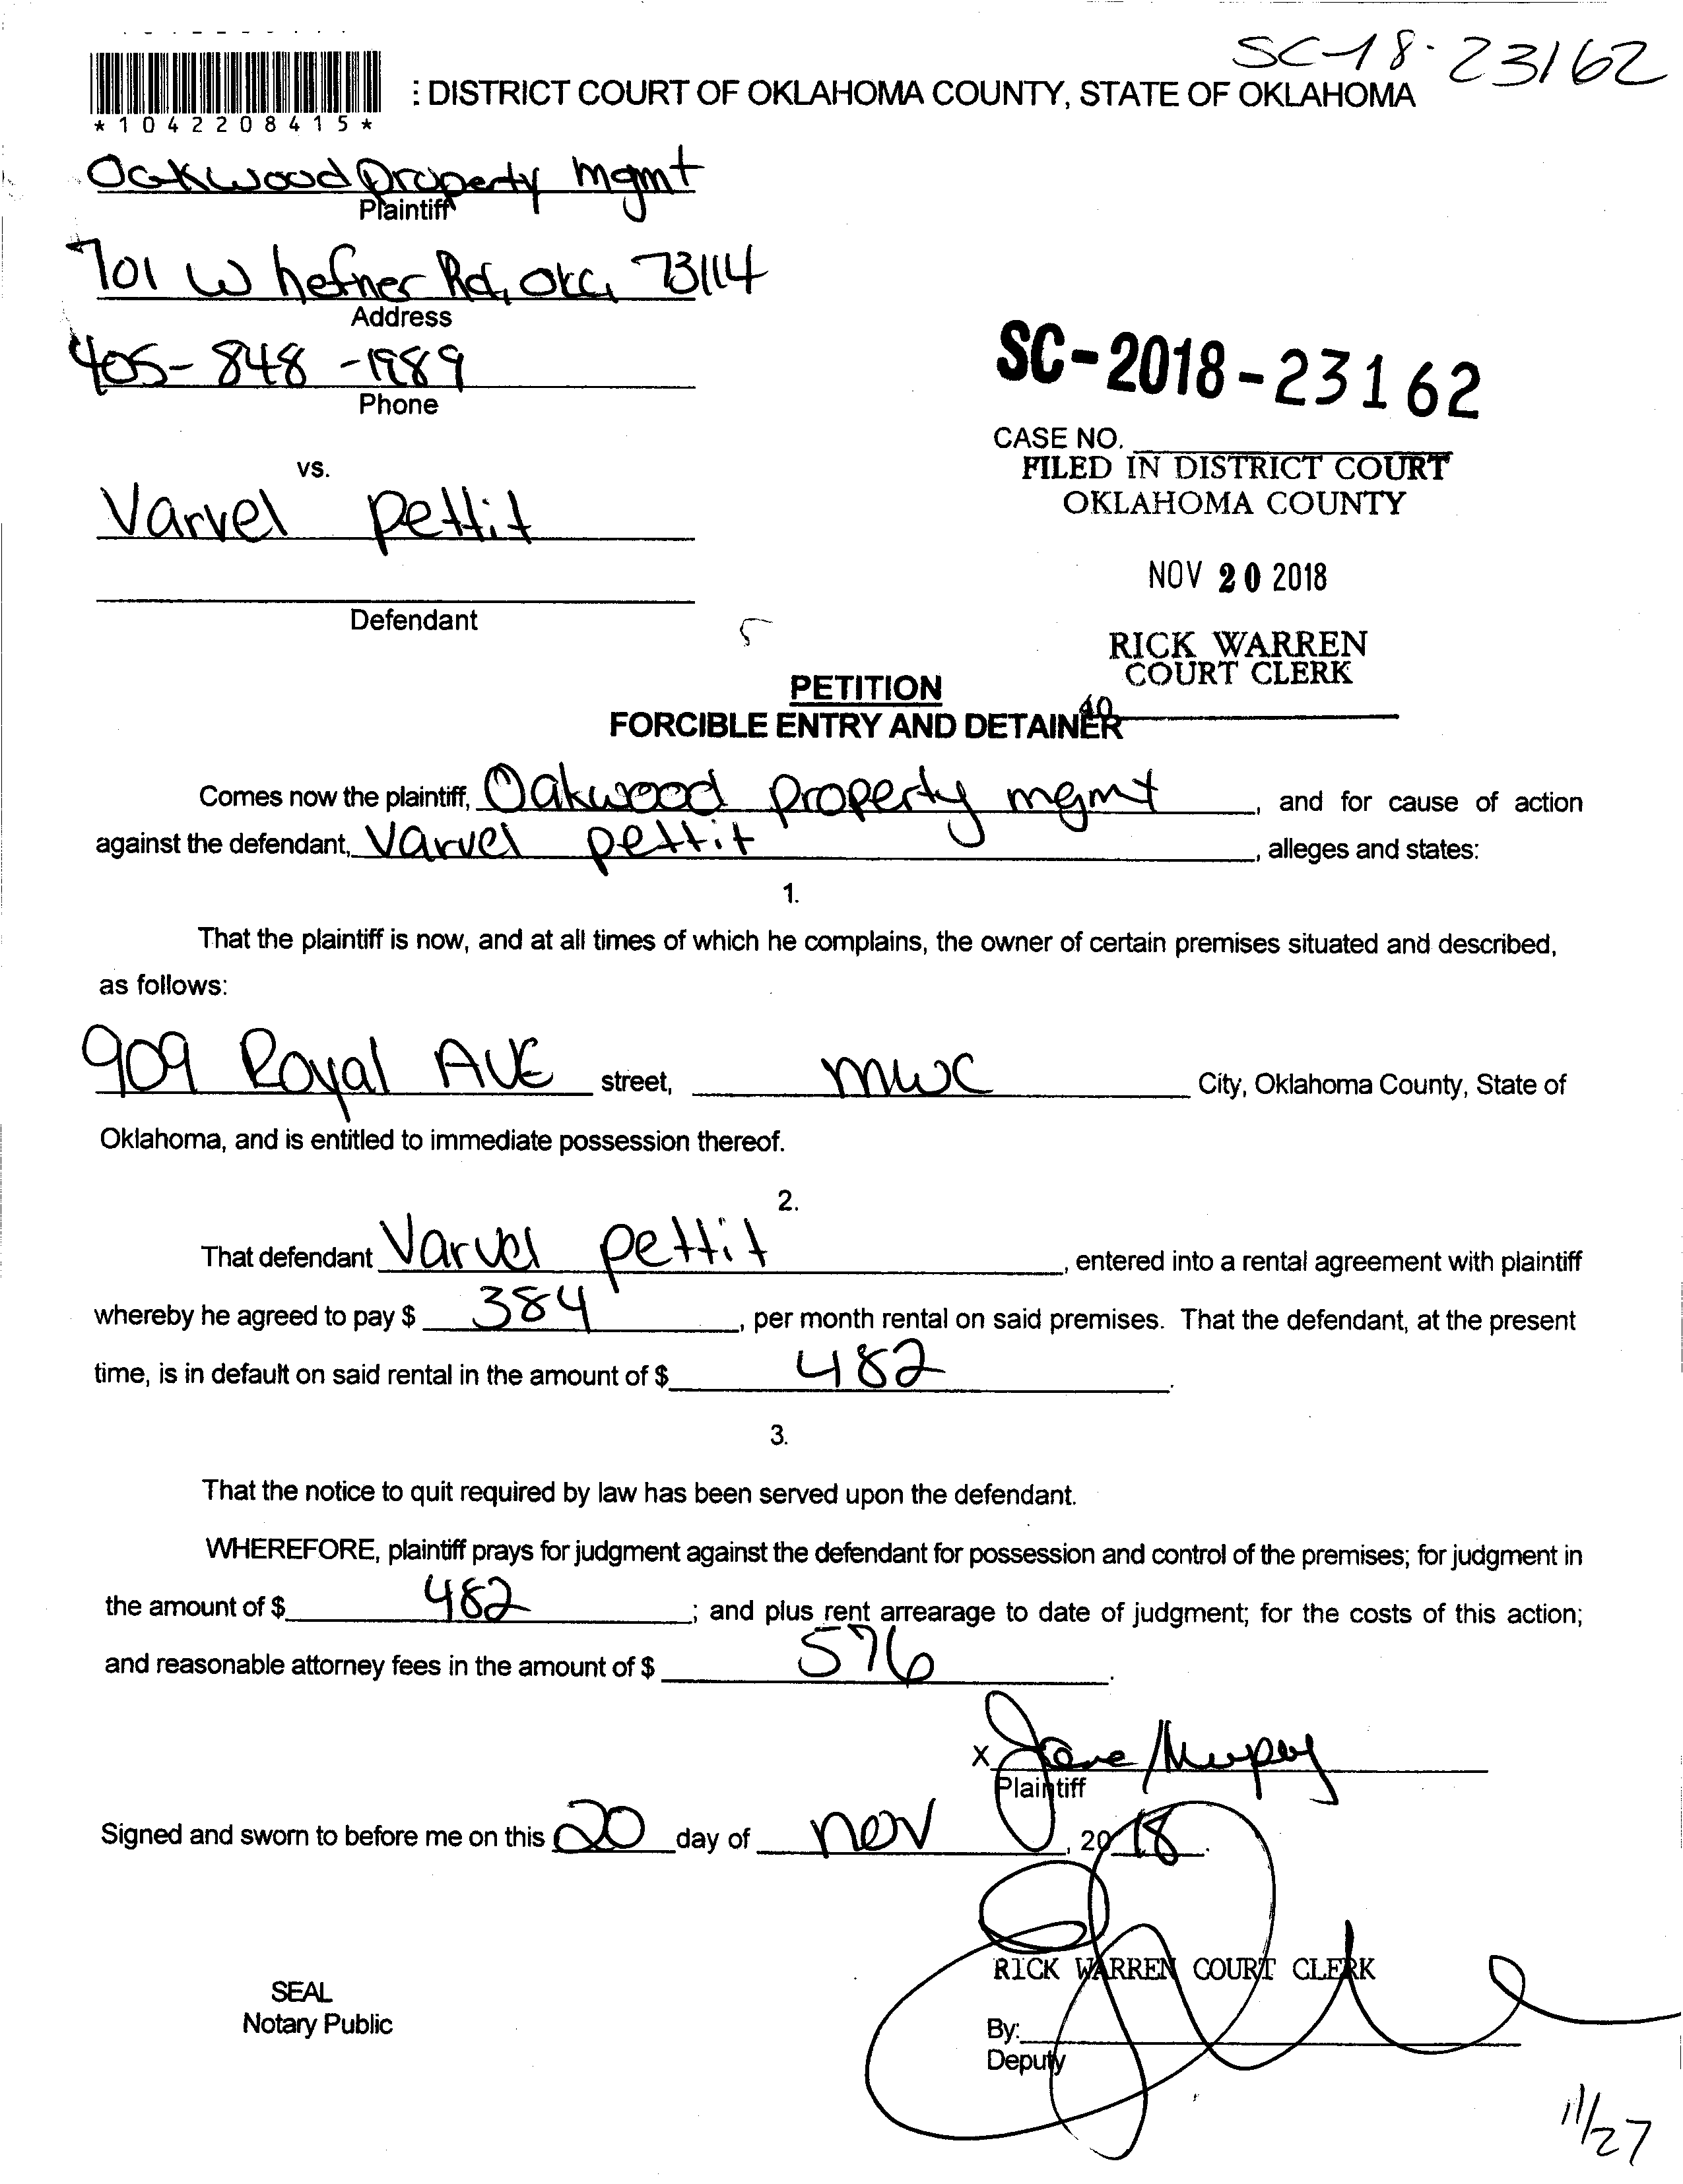 SC-18-23162
: DISTRICT COURT OF OKLAHOMA COUNTY, STATE OF OKLAHOMA
*1042208415*
Oakwood Property mgmt
Plaintiff
701 W hefner Rd, OKC, 73114
Address
405-848-1989
Phone
SC-2018-23162
CASE NO.
vs.
FILED IN DISTRICT COURT
OKLAHOMA COUNTY
Varvel pettit
NOV 20 2018
Defendant
RICK WARREN
COURT CLERK
PETITION
40
FORCIBLE ENTRY AND DETAINER
Comes now the plaintiff, Oakwood property mgmt, and for cause of action
against the defendant, Varvel pettit, alleges and states:
1.
That the plaintiff is now, and at all times of which he complains, the owner of certain premises situated and described,
as follows:
909 Royal AVE street, mwc City, Oklahoma County, State of
Oklahoma, and is entitled to immediate possession thereof.
2.
That defendant Varvel pettit, entered into a rental agreement with plaintiff
whereby he agreed to pay $ 384, per month rental on said premises. That the defendant, at the present
time, is in default on said rental in the amount of $ 482.
3.
That the notice to quit required by law has been served upon the defendant.
WHEREFORE, plaintiff prays for judgment against the defendant for possession and control of the premises; for judgment in
the amount of $ 482; and plus rent arrearage to date of judgment; for the costs of this action;
and reasonable attorney fees in the amount of $ 576.
X
Plaintiff
Signed and sworn to before me on this 20 day of nov, 2018.
RICK WARREN COURT CLERK
SEAL
Notary Public
By:
Deputy
11/27